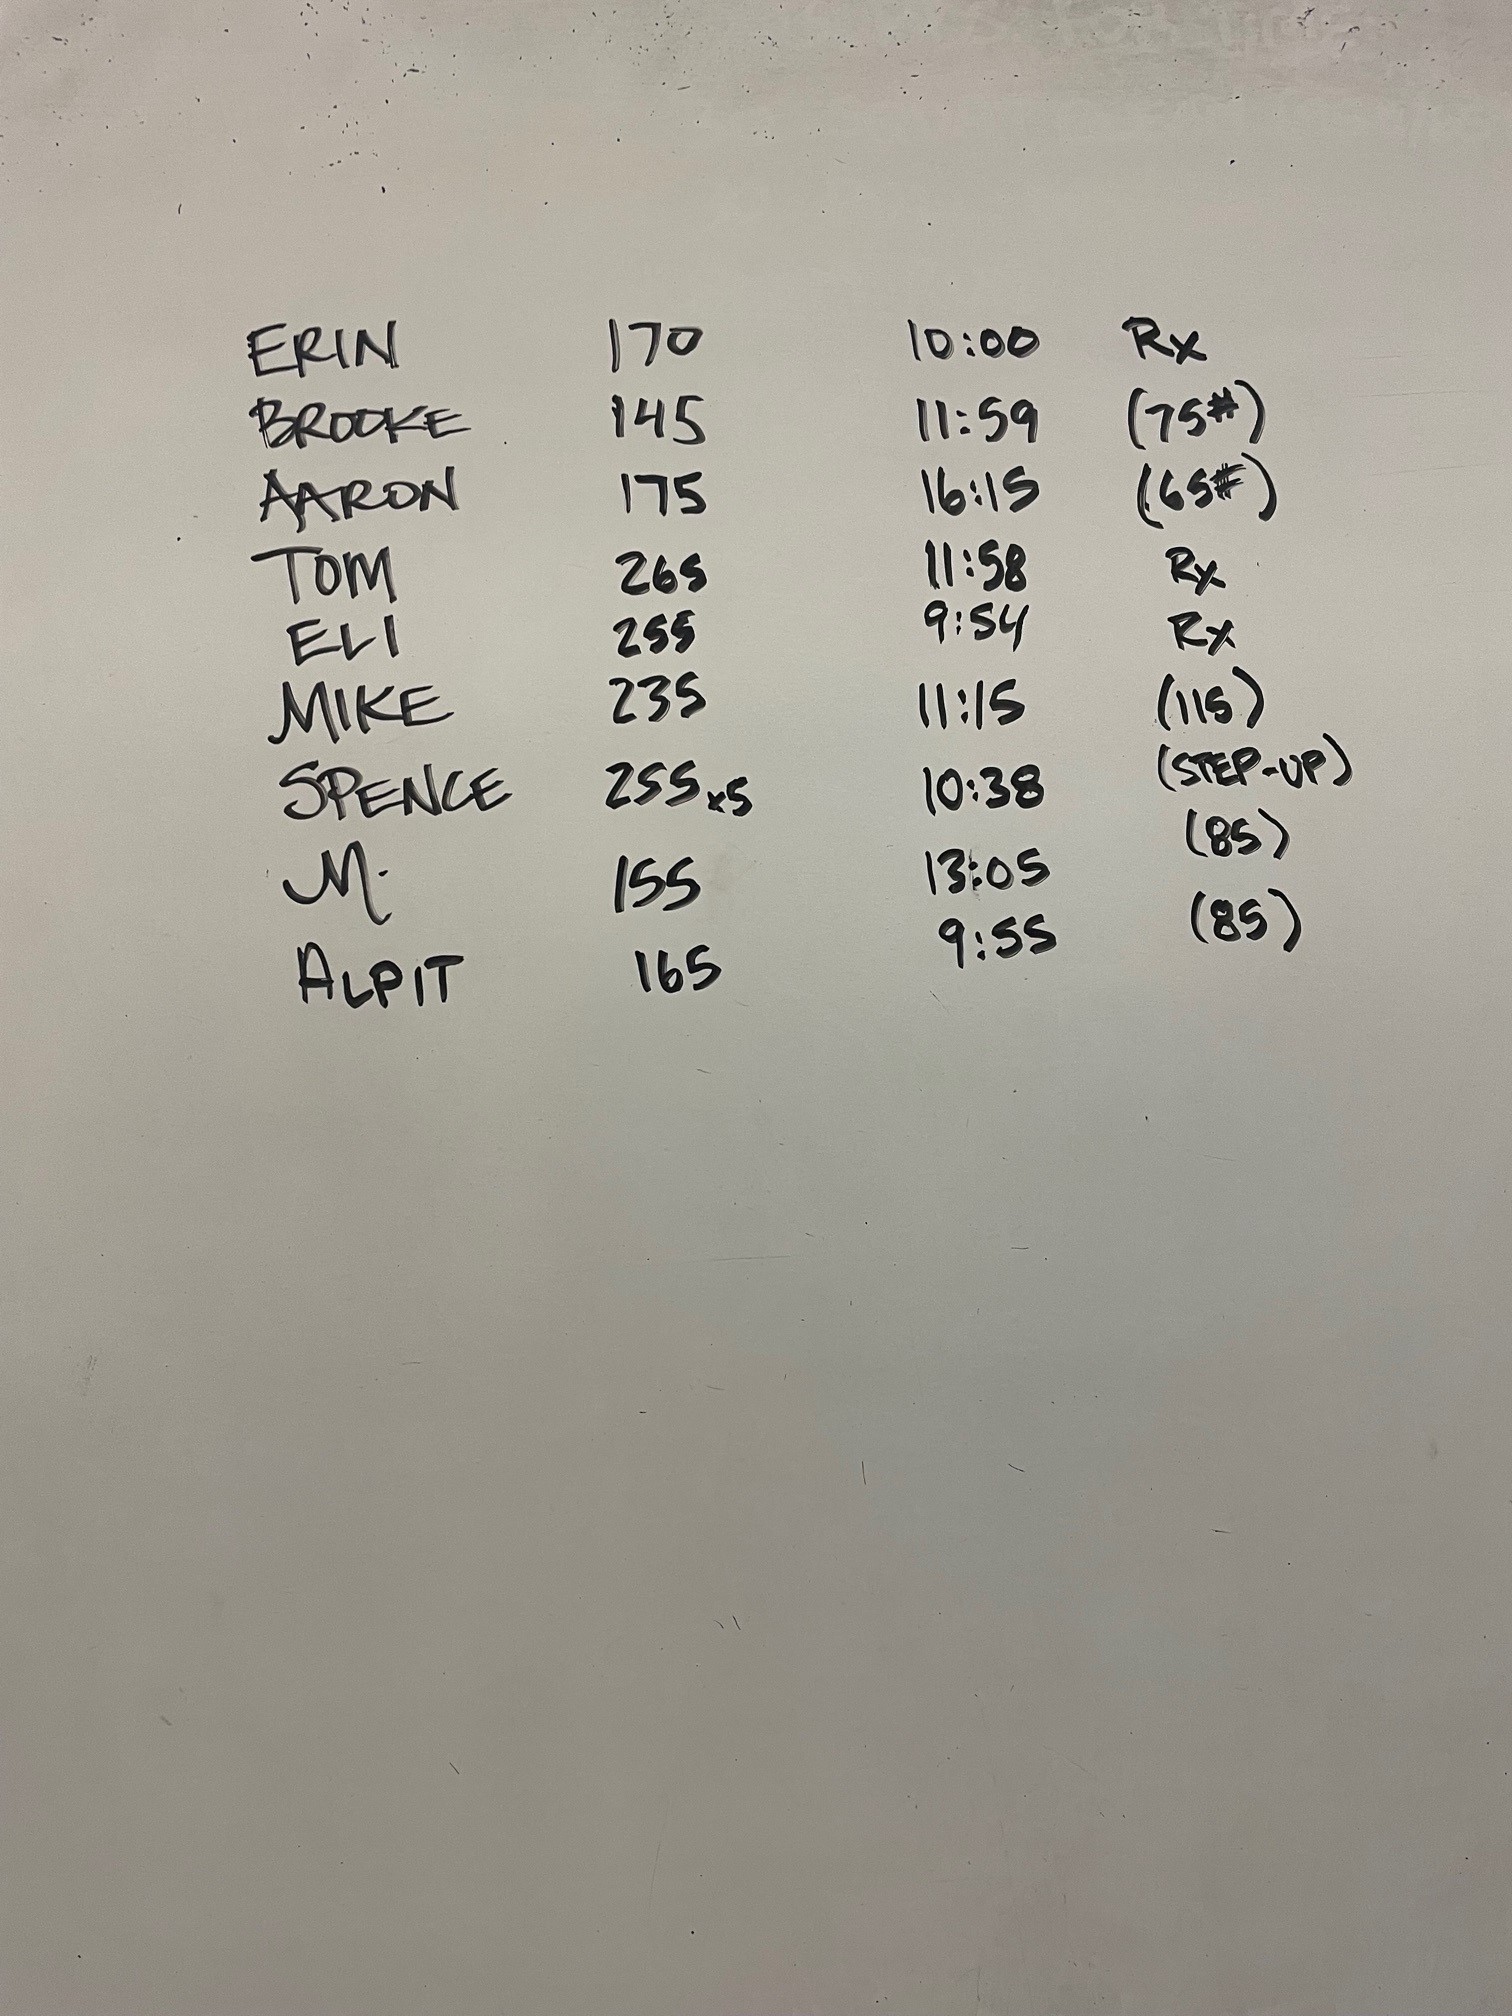 ERIN 170 10:00 Rx
BROOKE 145 11:59 (75#)
AARON 175 16:15 (65#)
TOM 265 11:58 Rx
ELI 255 9:54 Rx
MIKE 235 11:15 (115)
SPENCE 255x5 10:38 (STEP-UP)
M. 155 13:05 (85)
ALPIT 165 9:55 (85)